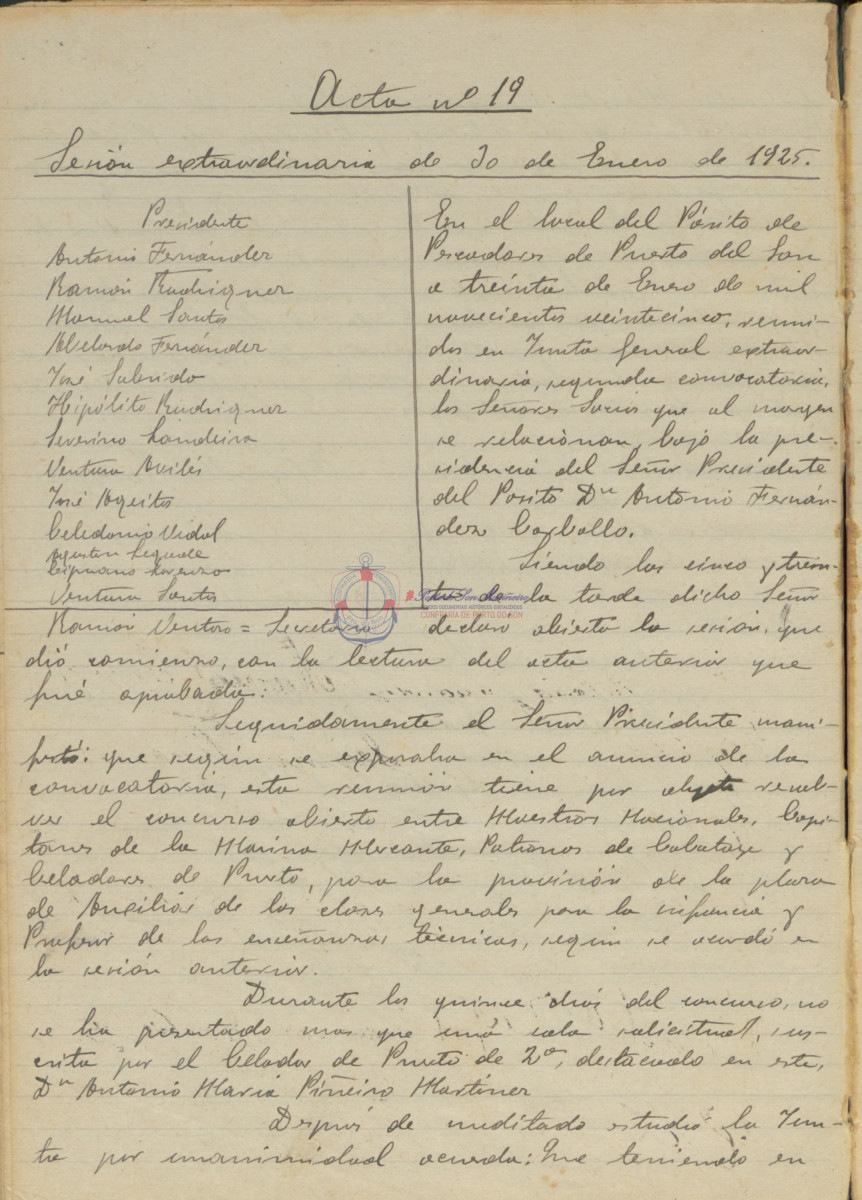 Acta nº 19
Sesión extraordinaria de 30 de Enero de 1925.
Presidente
Antonio Fernández
Ramón Rodriguez
Manuel Santos
Abelardo Fernández
José Sabrido
Hipólito Rodriguez
Severino Landeira
Ventura Avilés
José Ageitos
Celedonio Vidal
Agustin Legade
Cipriano Lorenzo
Ventura Santos
Ramón Ventoso = Secretario
En el local del Pósito de
Pescadores de Puerto del Son
a treinta de Enero de mil
novecientos veinticinco, reuni-
dos en Junta General extraor-
dinaria, segunda convocatoria,
los Señores Socios que al margen
se relacionan, bajo la pre-
sidencia del Señor Presidente
del Posito Dn Antonio Fernán-
dez Carballo.
Siendo las cinco y trein-
ta de la tarde dicho Señor
declaro abierta la sesión, que
dió comienzo, con la lectura del acta anterior que
fué aprobada.
Seguidamente el Señor Presidente mani-
festó: que según se expresaba en el anuncio de la
convocatoria, esta reunión tiene por objeto resol-
ver el concurso abierto entre Maestros Nacionales, Capi-
tanes de la Marina Mercante, Patronos de Cabotage y
Celadores de Puerto, para la provisión de la plaza
de Auxiliar de las clases generales para la infancia y
Profesor de las enseñanzas técnicas, según se acordó en
la sesión anterior.
Durante los quince dias del concurso, no
se ha presentado mas que una sola solicitud, sus-
crita por el Celador de Puerto de 2ª, destacado en este,
Dn Antonio Maria Piñeiro Martínez
Después de meditado estudio la Jun-
ta por unanimidad acuerda: Que teniendo en
CONFRARIA DE PORTO DO SON